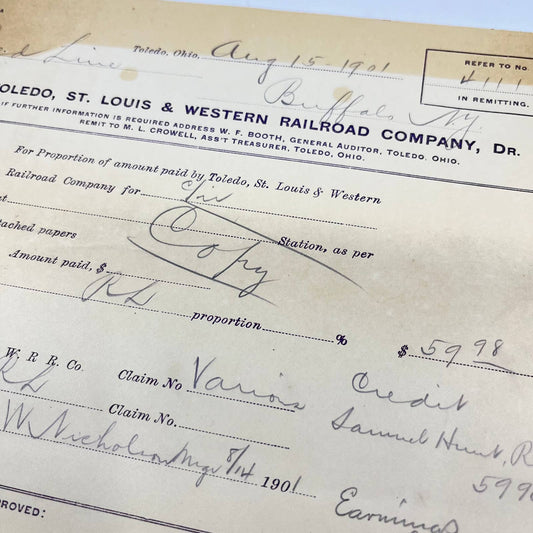 Toledo, Ohio, Aug 15 1901
REFER TO No.
4111
IN REMITTING.
d Line
Buffalo Ny.
OLEDO, ST. LOUIS & WESTERN RAILROAD COMPANY, DR.
IF FURTHER INFORMATION IS REQUIRED ADDRESS W. F. BOOTH, GENERAL AUDITOR, TOLEDO, OHIO.
REMIT TO M. L. CROWELL, ASS'T TREASURER, TOLEDO, OHIO.
For Proportion of amount paid by Toledo, St. Louis & Western
Railroad Company for
Station, as per
Copy
tached papers
Amount paid, $
RL proportion % $ 59 98
W. R. R. Co. Claim No Various Credit
RL Claim No. Samuel Hunt, R
W. Nicholson Mgr 8/14 1901 5998
Earnings
PROVED: